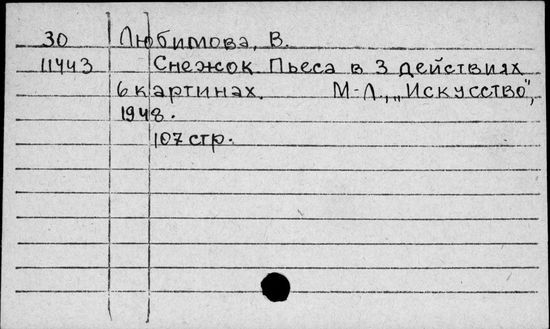 30 Любимова, В.
11443 Снежок Пьеса в 3 действиях
6 картинах. М-Л., „Искусство",
1948.
107 стр.